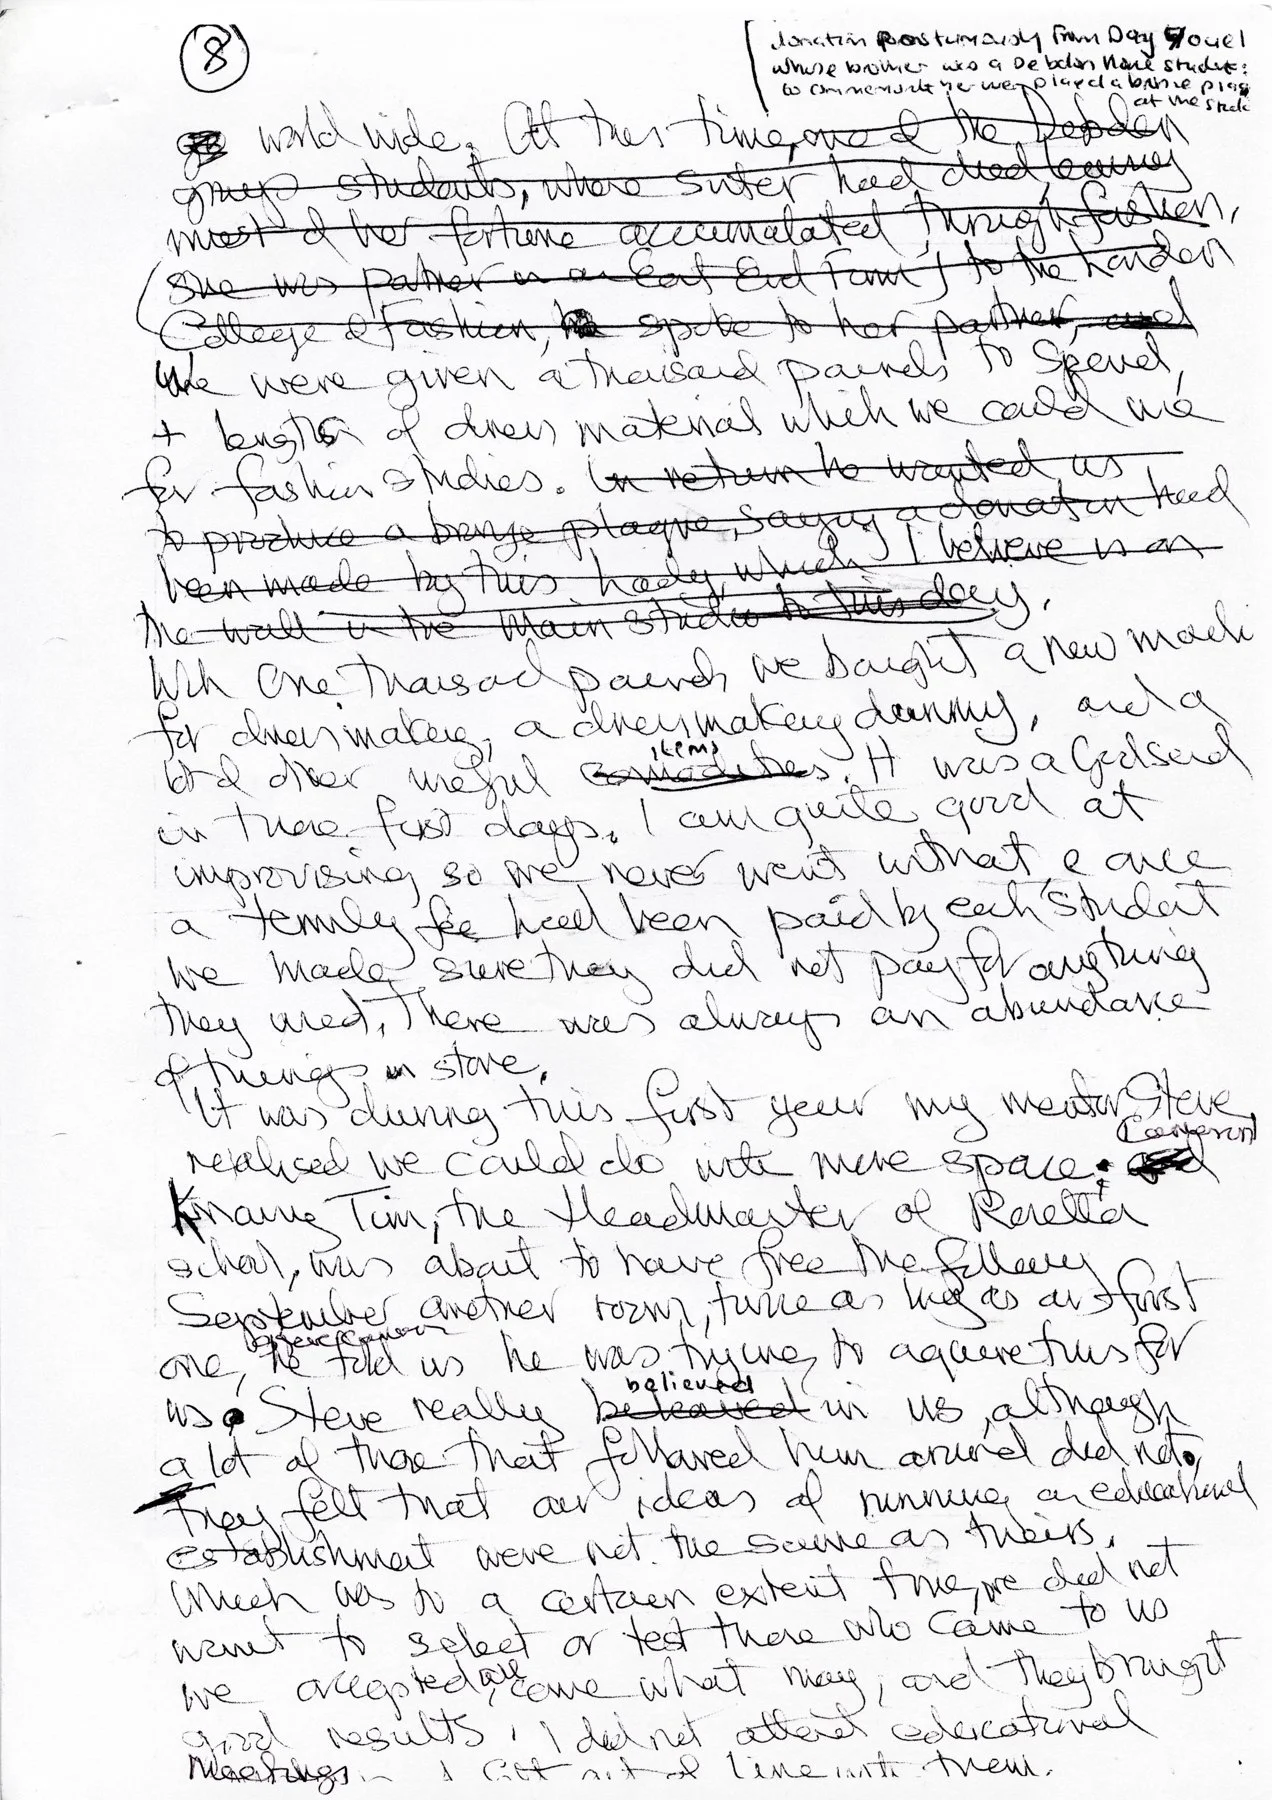 8
donation posthumously from Day
whose brother was a Debden House student:
to commemorate we placed a bronze plaq
at the studio
world wide. At this time, one of the Debden
group students, whose sister had died, leaving
most of her fortune accumulated through fashion,
(she was partner in an East End Firm) to the London
College of Fashion, he spoke to her partner, and
We were given a thousand pounds to spend,
+ lengths of dress material which we could use
for fashion studies. In return he wanted us
to produce a bronze plaque, saying a donation had
been made by this lady, which I believe is on
the wall in the main studio to this day.
With one thousand pounds we bought a new machi
for dressmaking, a dressmaking dummy, and a
lot of other useful comodities. items It was a Godsend
in those first days. I am quite good at
improvising so we never went without, & once
a termly fee had been paid by each student
we made sure they did not pay for anything
they used, There was always an abundance
of things in store.
It was during this first year my mentor Steve
Cameron
realised we could do with more space. and
Knowing Tim, the Headmaster of
school, was about to have free the following
September another room, twice as big as our first
one, he told us he was trying to aquire this for
us. Steve really believed in us, although
a lot of those that followed him around did not,
They felt that our ideas of running an educational
establishment were not the same as theirs.
Which was to a certain extent true, we did not
want to select or test those who came to us
we accepted all, come what may, and they brought
good results. I did not attend educational
Meetings I got out of line with them.